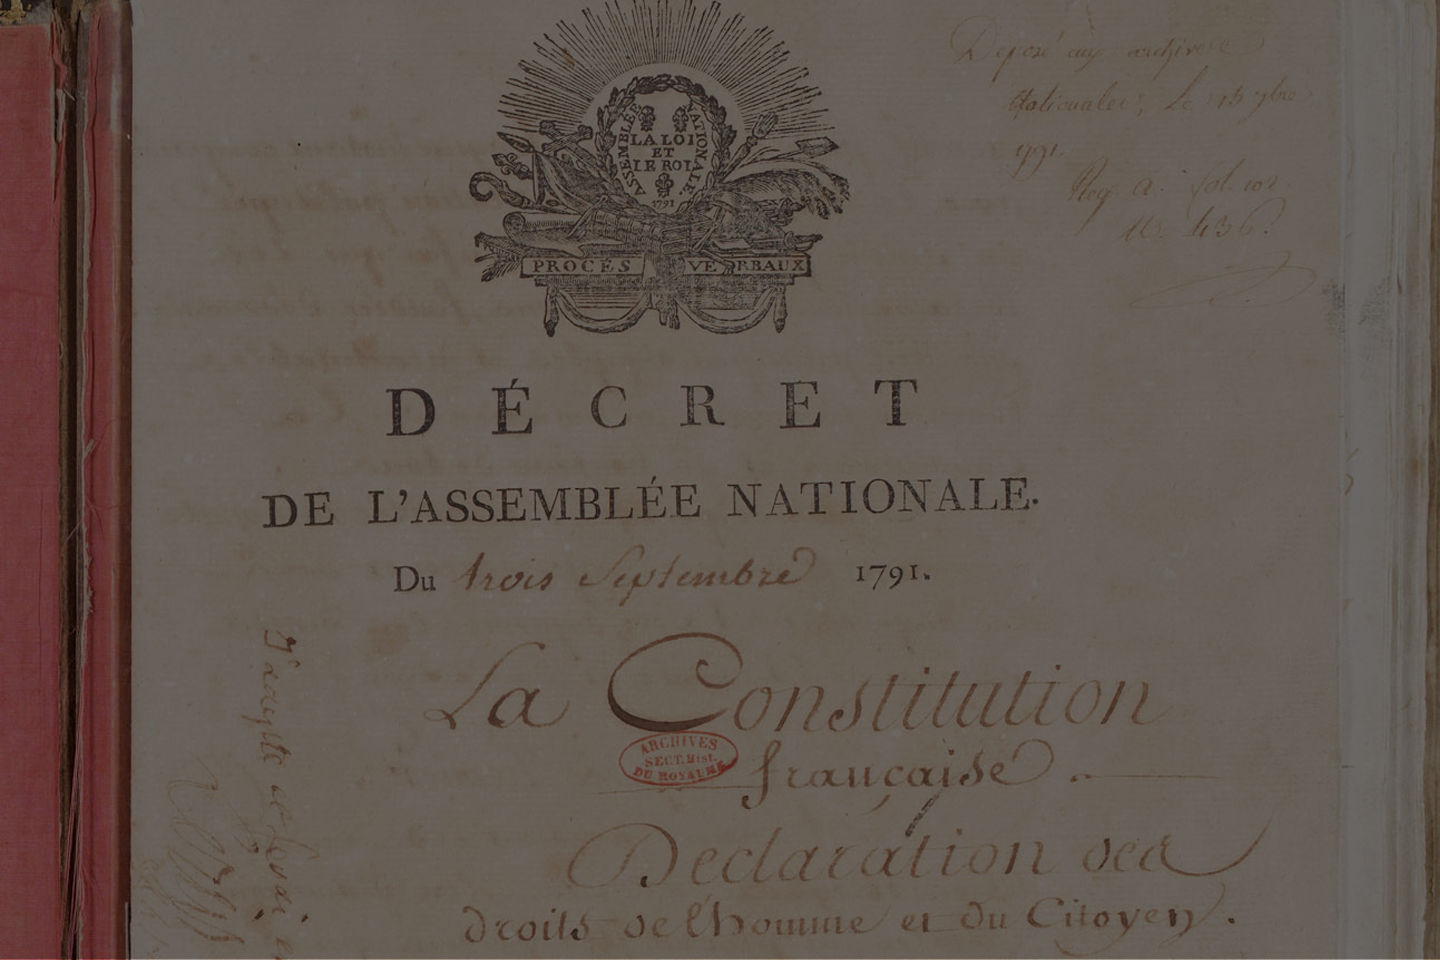 ASSEMBLÉE NATIONALE.
LA LOI
ET
LE ROI
1791
PROCÈS VERBAUX
Déposé aux archives
Nationales, Le 13 7bre
1791.
Reg. A. fol. 102.
N. 436.
DÉCRET
DE L'ASSEMBLÉE NATIONALE.
Du trois Septembre 1791.
La Constitution
française.
ARCHIVES
SECT. Hist.
DU ROYAUME
Declaration des
droits de l'homme et du Citoyen.
J'accepte et ferai